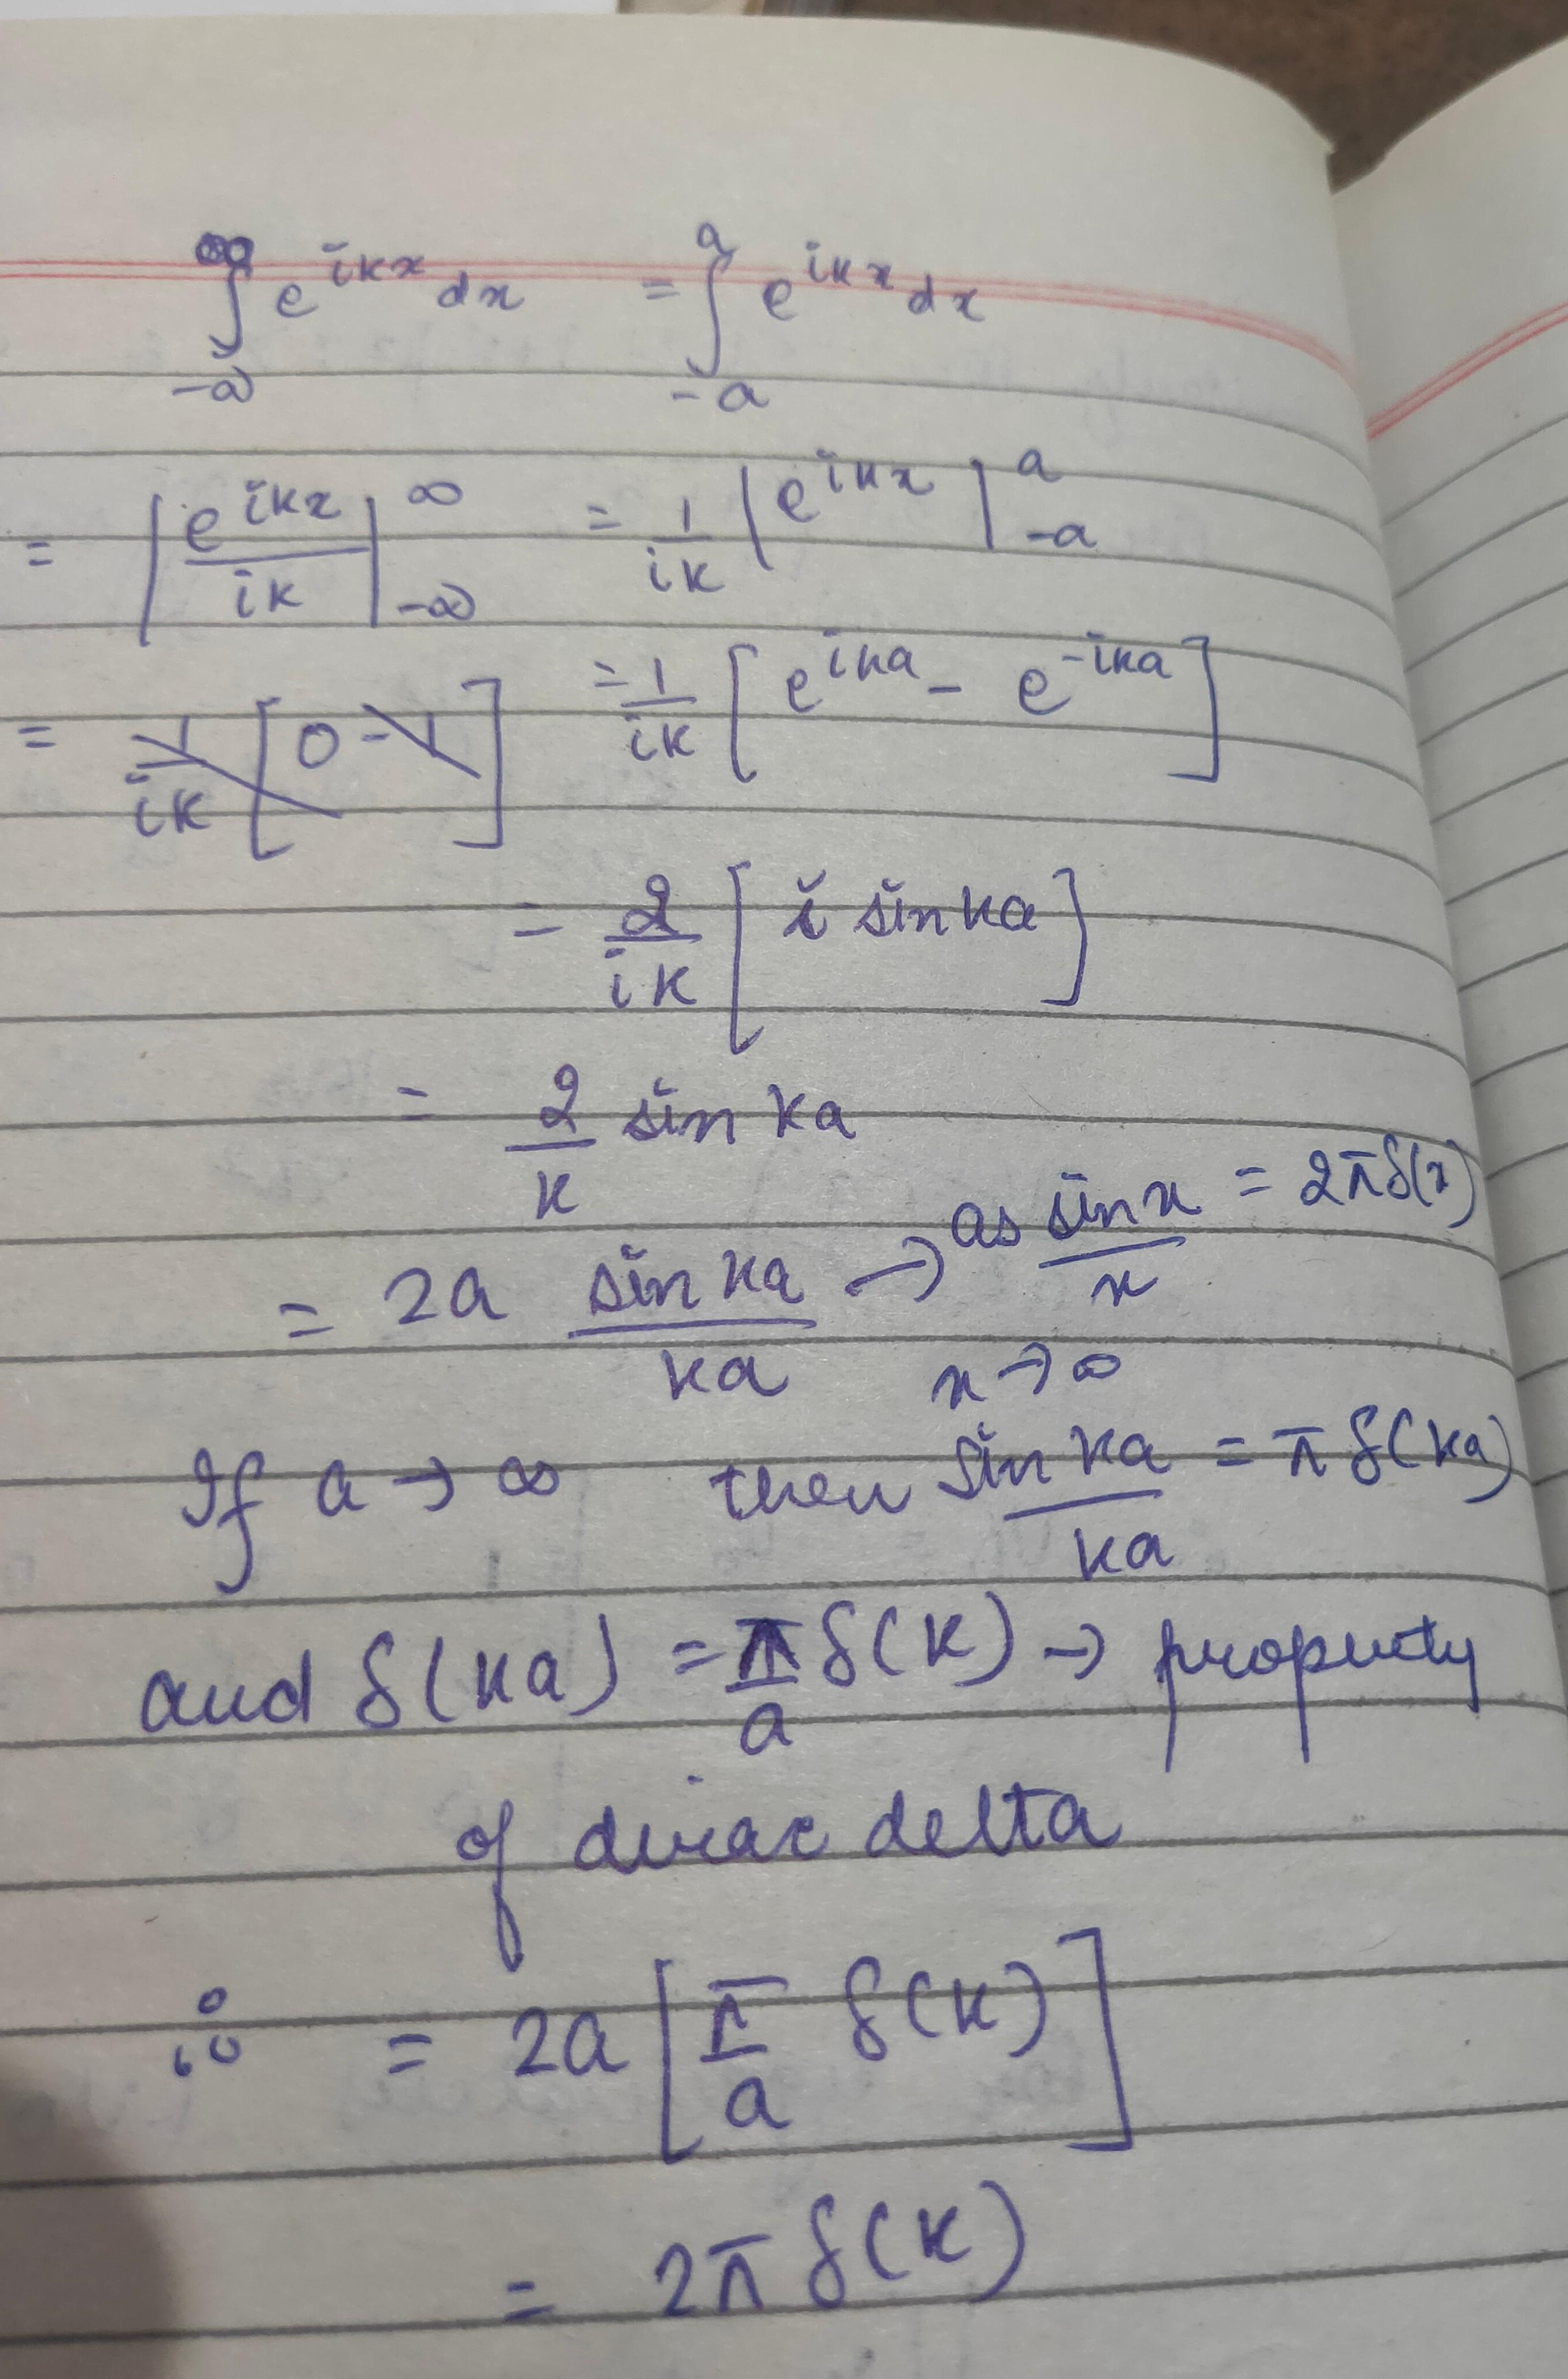 ∞∫-∞ e^{ikx} dx = a∫-a e^{ikx} dx
= |e^{ikx}/ik|^{∞}_{-∞} = 1/ik |e^{ikx}|^{a}_{-a}
= 1/ik [0-1] = 1/ik [e^{ika} - e^{-ika}]
= 2/ik [i sin ka]
= 2/k sin ka
= 2a sin ka/ka → as sin x/x = 2πδ(x)
x→∞
If a → ∞ then sin ka/ka = π δ(ka)
and δ(ka) = π/a δ(k) → property
of dirac delta
∴ = 2a [π/a δ(k)]
= 2π δ(k)